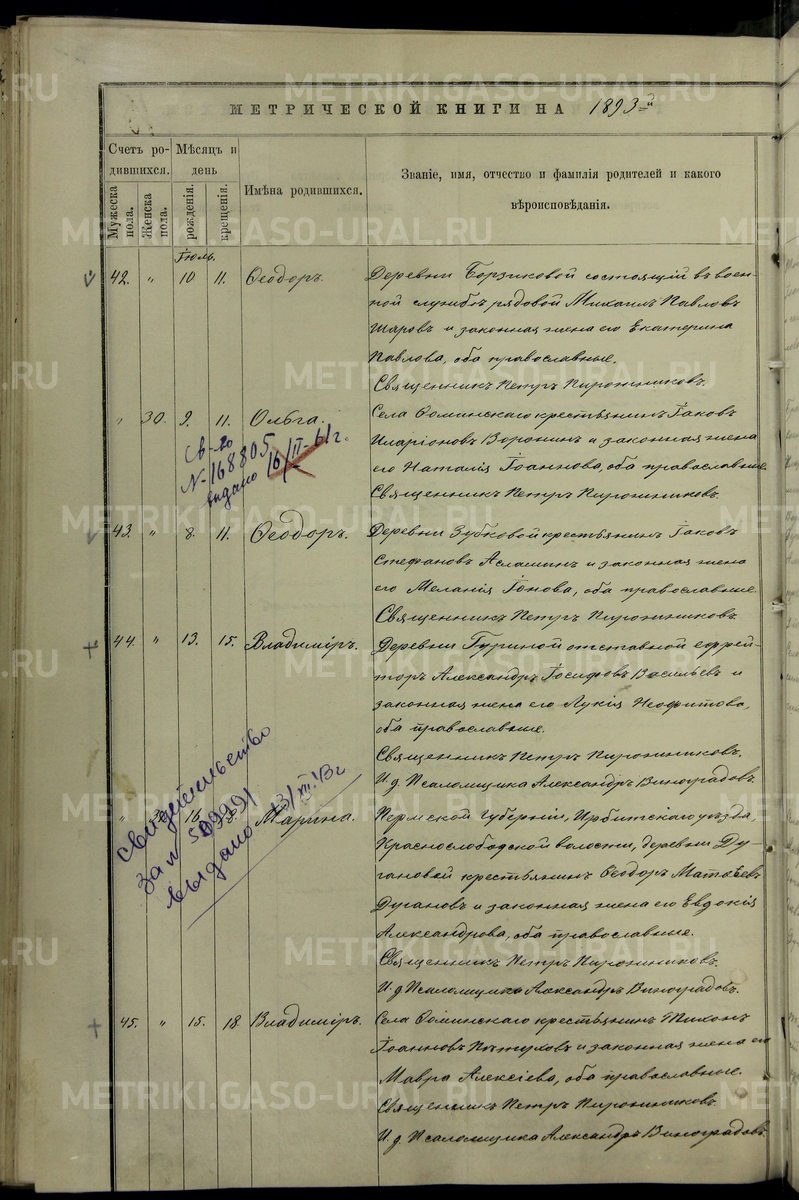 МЕТРИЧЕСКОЙ КНИГИ НА 1893-й
Счетъ ро-
дившихся.
Мужеска
пола.
Женска
пола.
Мѣсяцъ и
день
рожденія.
крещенія.
Имёна родившихся.
Званіе, имя, отчество и фамилія родителей и какого
вѣроисповѣданія.
Іюль.
42. " 10 11. Ѳеодоръ.
Деревни Борзиковой состоящій въ воен-
ной службѣ рядовой Михаилъ Павловъ
Шаровъ и законная жена его Екатерина
Павлова, оба православные.
Священникъ Петръ Пирожниковъ.
" 30. 9. 11. Ольга.
Св-во
N-168805
выдано 16/II-61г.
Села Ѳоминскаго крестьянинъ Іаковъ
Иларіоновъ Воронинъ и законная жена
его Наталія Іоаннова, оба православные.
Священникъ Петръ Пирожниковъ.
43. " 8. 11. Ѳеодоръ.
Деревни Зубковой крестьянинъ Іаковъ
Стефановъ Асламинъ и законная жена
его Меланія Іонова, оба православные.
Священникъ Петръ Пирожниковъ.
44. " 13. 15. Владиміръ.
Деревни Гуриной отставной ефрей-
торъ Александръ Іосифовъ Васильевъ и
законная жена его Лукія Неофитова,
оба православные.
Священникъ Петръ Пирожниковъ.
И. д. Псаломщика Александръ Виноградовъ.
" 16. Марина.
Свидетельство
за N
выдано 13/VII
Пермской губерніи, Ирбитскаго уѣзда,
Краснослободской волости, деревни Ду-
гановой крестьянинъ Ѳеодоръ Матѳеевъ
Дугановъ и законная жена его Евдокія
Александрова, оба православные.
Священникъ Петръ Пирожниковъ.
И. д. Псаломщика Александръ Виноградовъ.
45. " 15. 18. Владиміръ.
Села Ѳоминскаго крестьянинъ Тихонъ
Іоанновъ Пѣтуховъ и законная жена его
Мавра Алексіева, оба православные.
Священникъ Петръ Пирожниковъ.
И. д. Псаломщика Александръ Виноградовъ.
METRIKI.GASO-URAL.RU